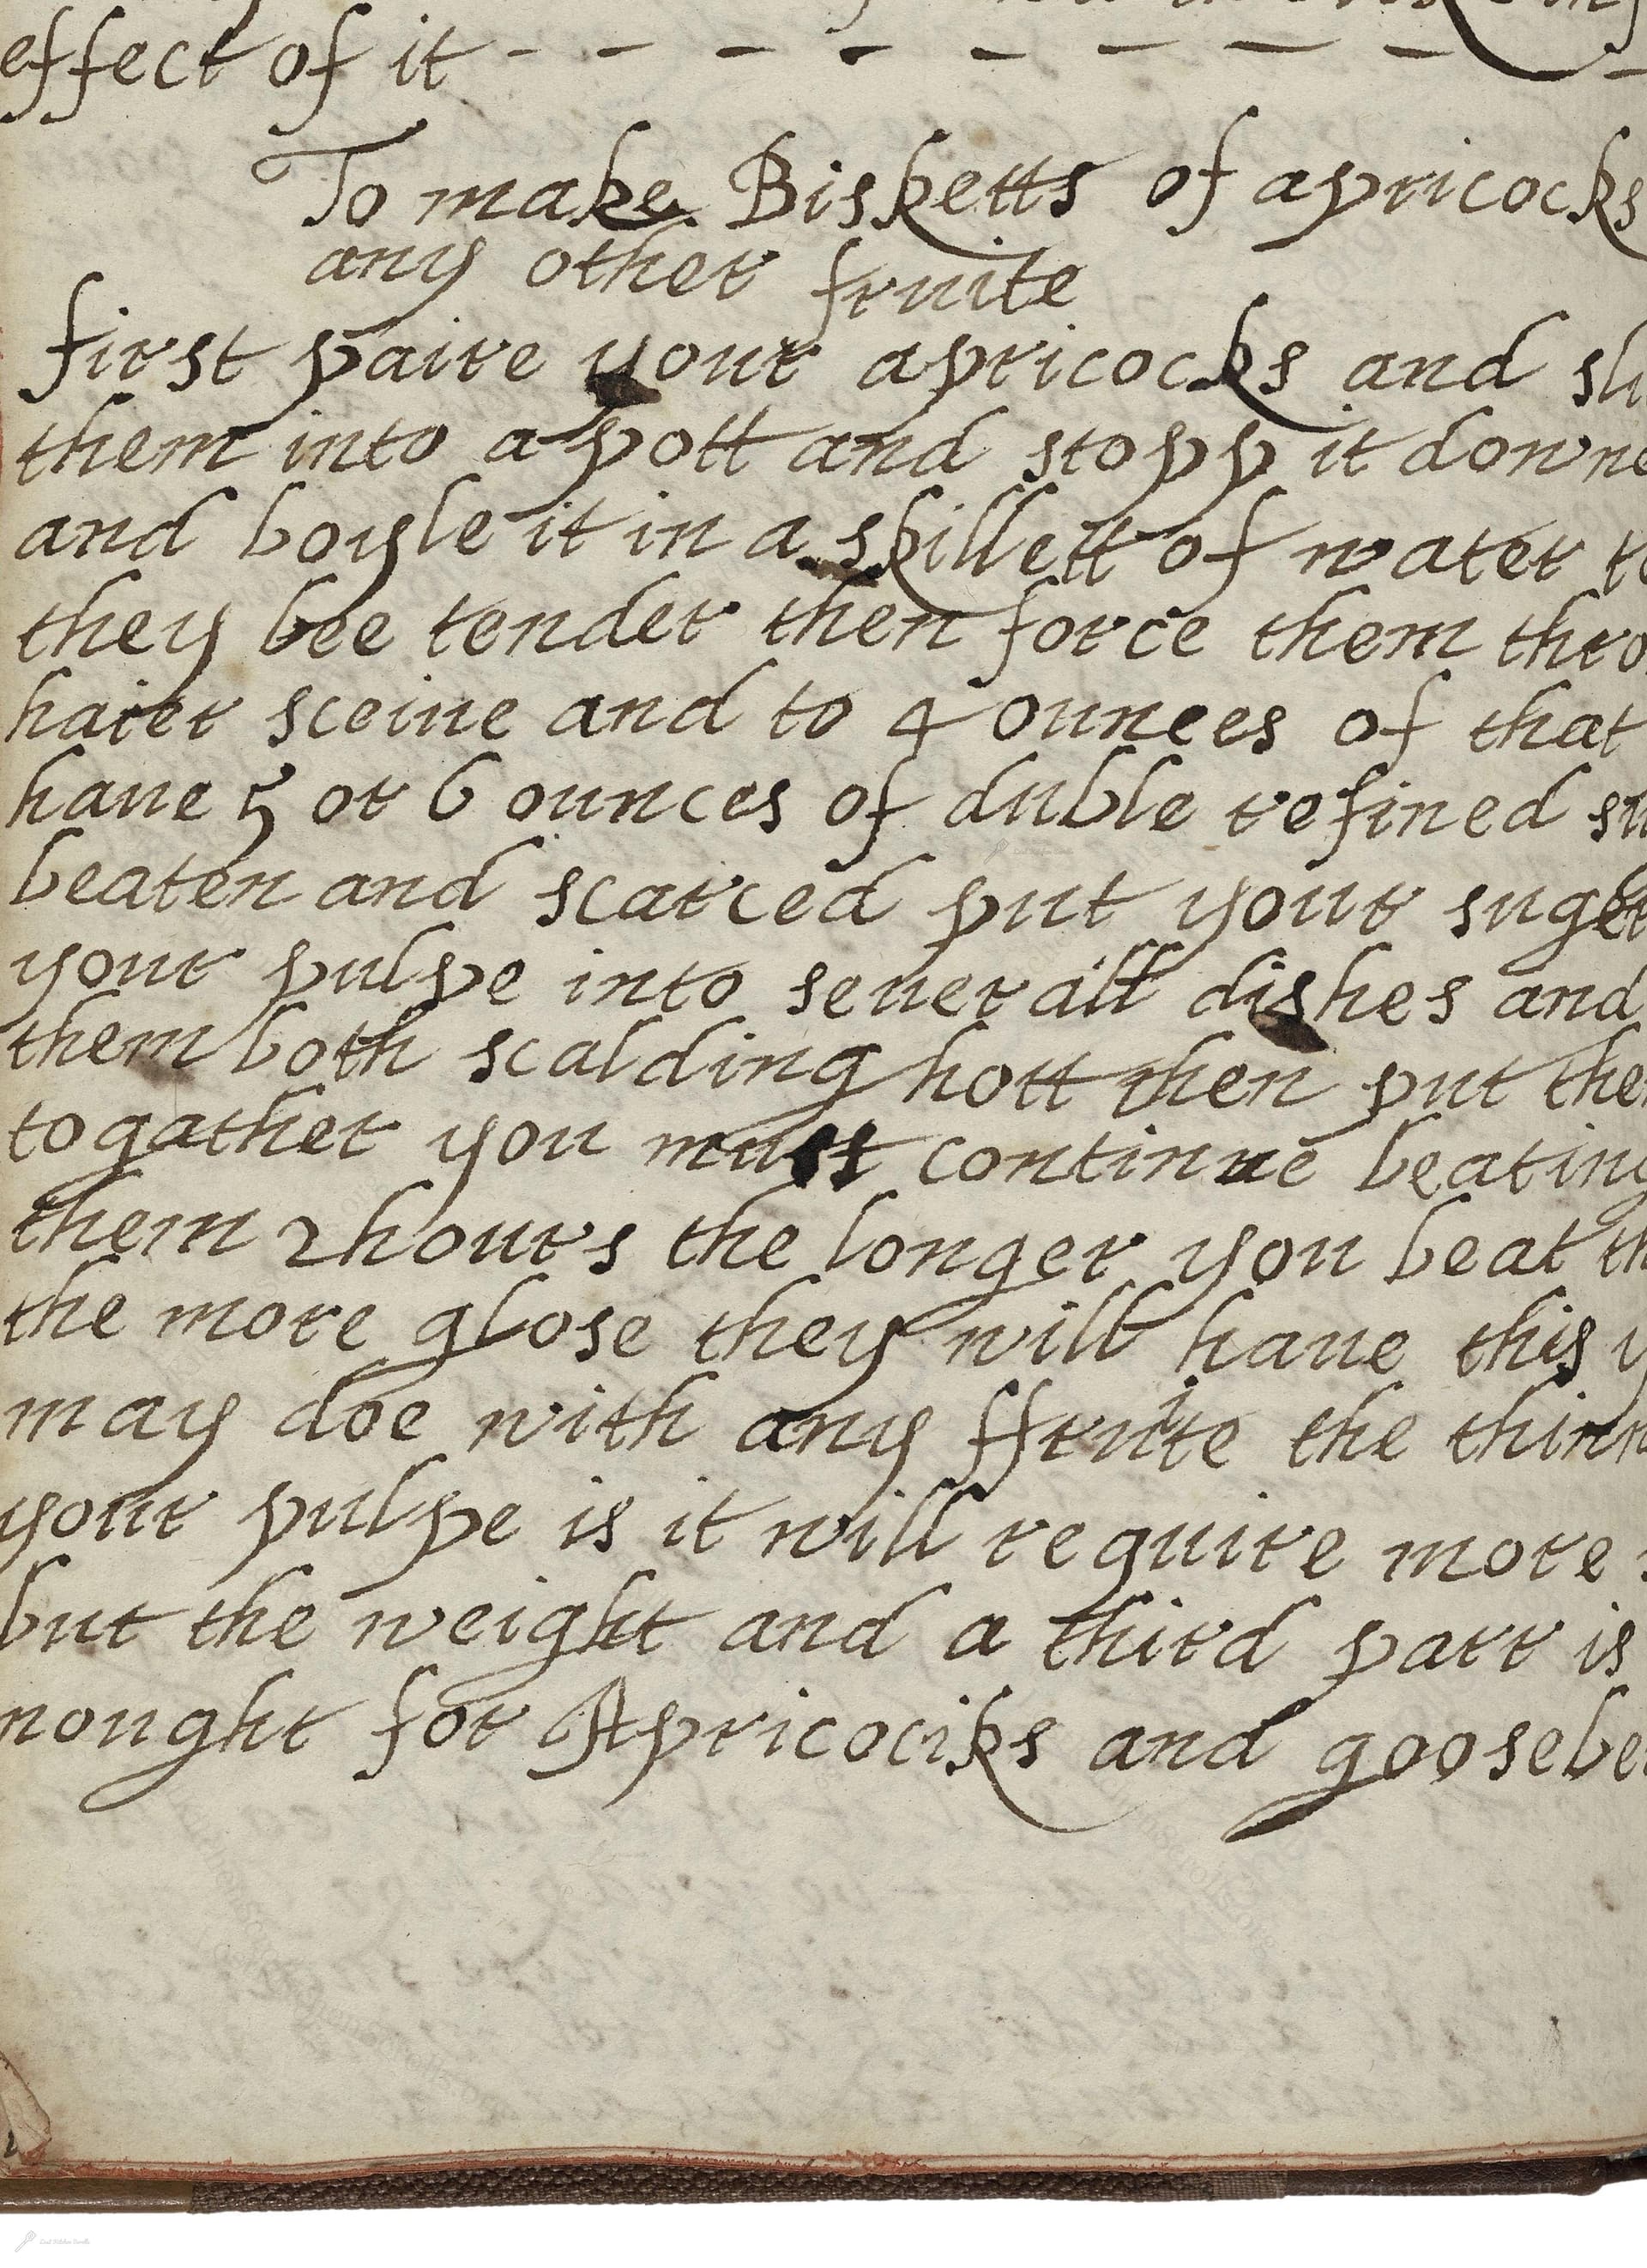 effect of it - - - - - - - - -
To make Bisketts of apricocks
any other fruite
first paire your apricocks and sli
them into a pott and stopp it downe
and boyle it in a skillett of water
they bee tender then force them thro
haier sceiue and to 4 ounces of that
haue 5 or 6 ounces of duble refined su
beaten and scarced put your suger
your pulpe into seuerall dishes and
them both scalding hott then put them
togather you must continue beating
them 2 hours the longer you beat th
the more glose they will haue this y
may doe with any ffruite the thinn
your pulpe is it will require more
but the weight and a third parr is
nought for Apricociks and goosebe